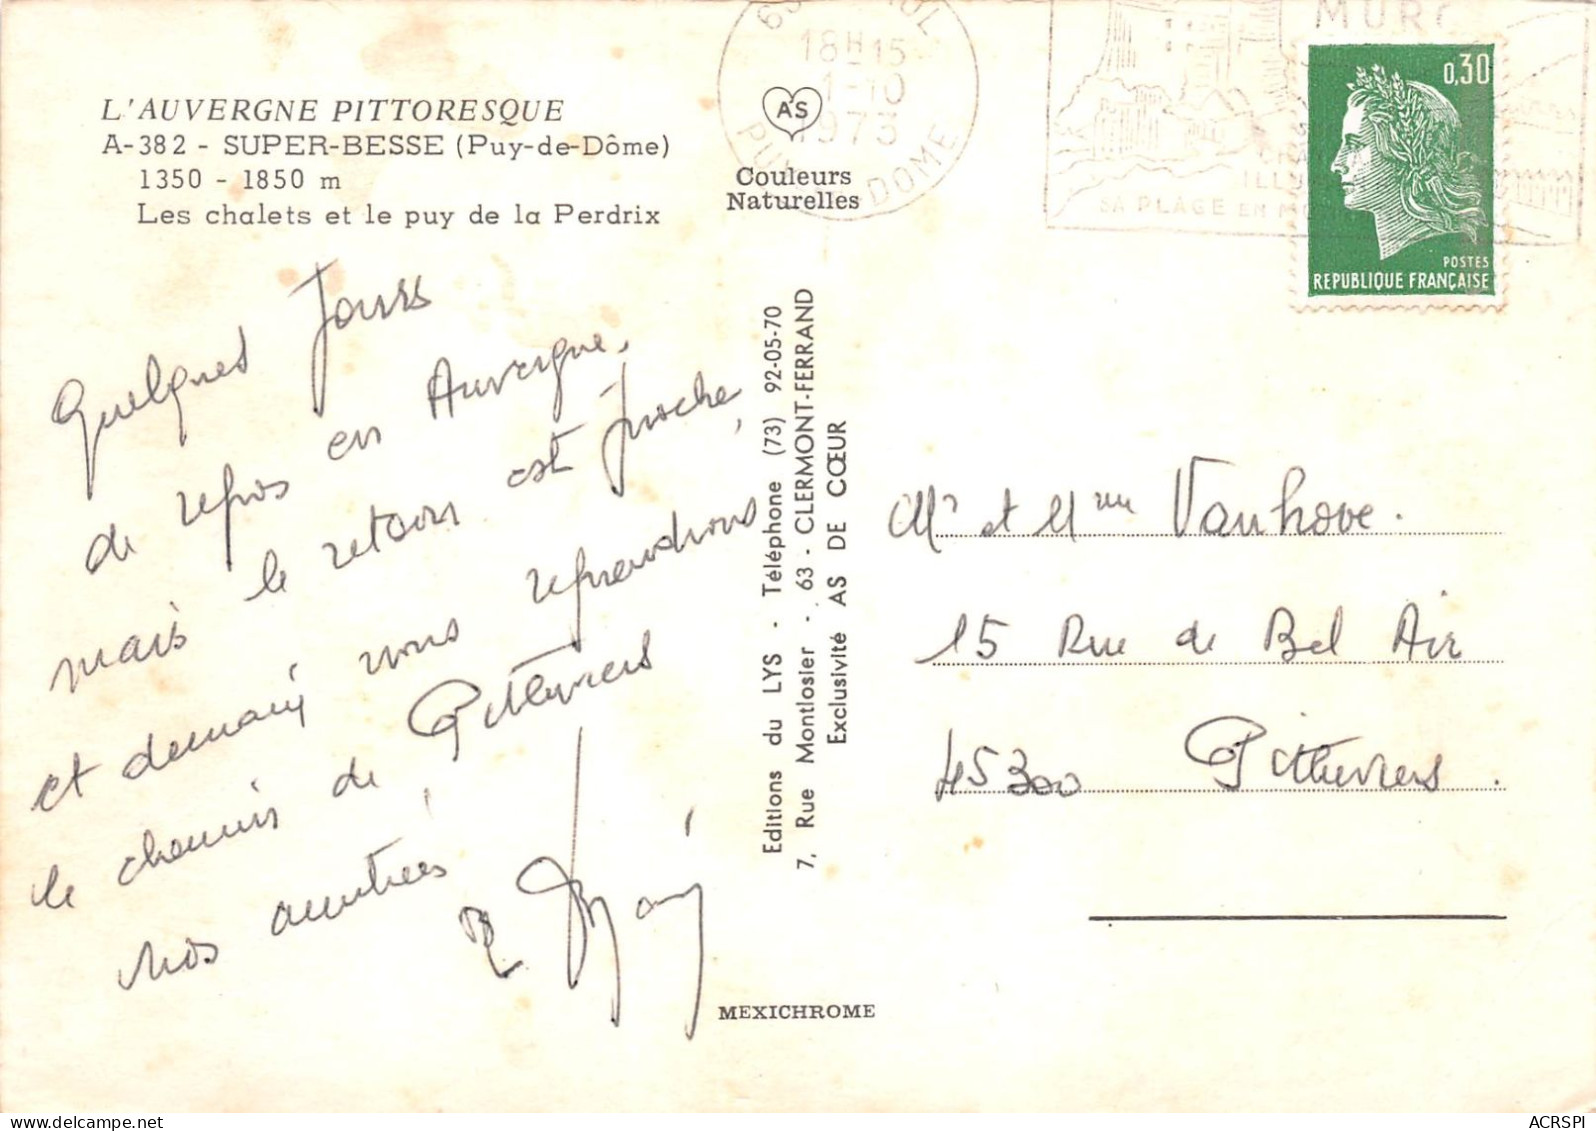 L'AUVERGNE PITTORESQUE
A-382 - SUPER-BESSE (Puy-de-Dôme)
1350 - 1850 m
Les chalets et le puy de la Perdrix
Quelques Jours
de repos en Auvergne,
mais le retour est proche,
et demain nous reprendrons
le chemin de Pithiviers
Nos amitiés
AS
Couleurs
Naturelles
18H15
1-10
1973
PUY DOME
MURO
SA PLAGE EN
0,30
POSTES
REPUBLIQUE FRANÇAISE
Editions du LYS - Téléphone (73) 92-05-70
7, Rue Montlosier - 63 - CLERMONT-FERRAND
Exclusivité AS DE CŒUR
Mr et Mme Vanhove.
15 Rue de Bel Air
45300 Pithiviers.
MEXICHROME
ACRSPI